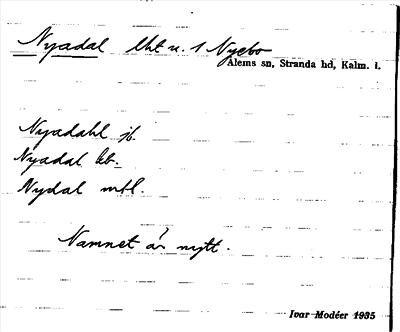 Nyadal lht u. 1 Nyebo
Ålems sn, Stranda hd, Kalm. l.
Nyadahl jb.
Nyadal kb.
Nydal mtl.
Namnet är nytt.
Ivar Modéer 1935